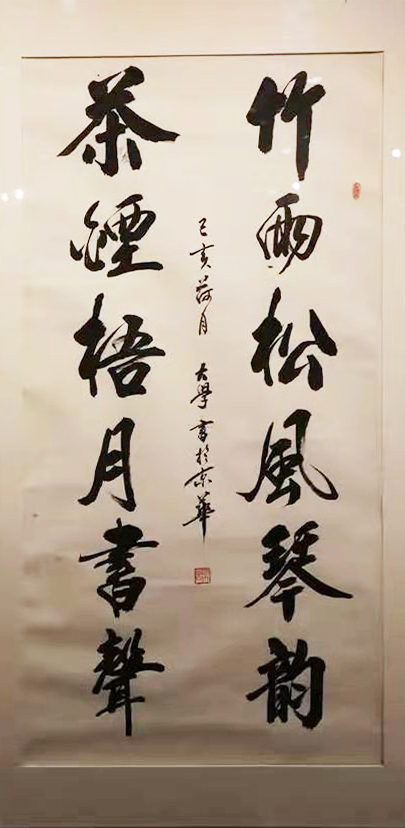 竹雨松風琴韵
茶煙梧月書聲
己亥荷月 大學書於京華